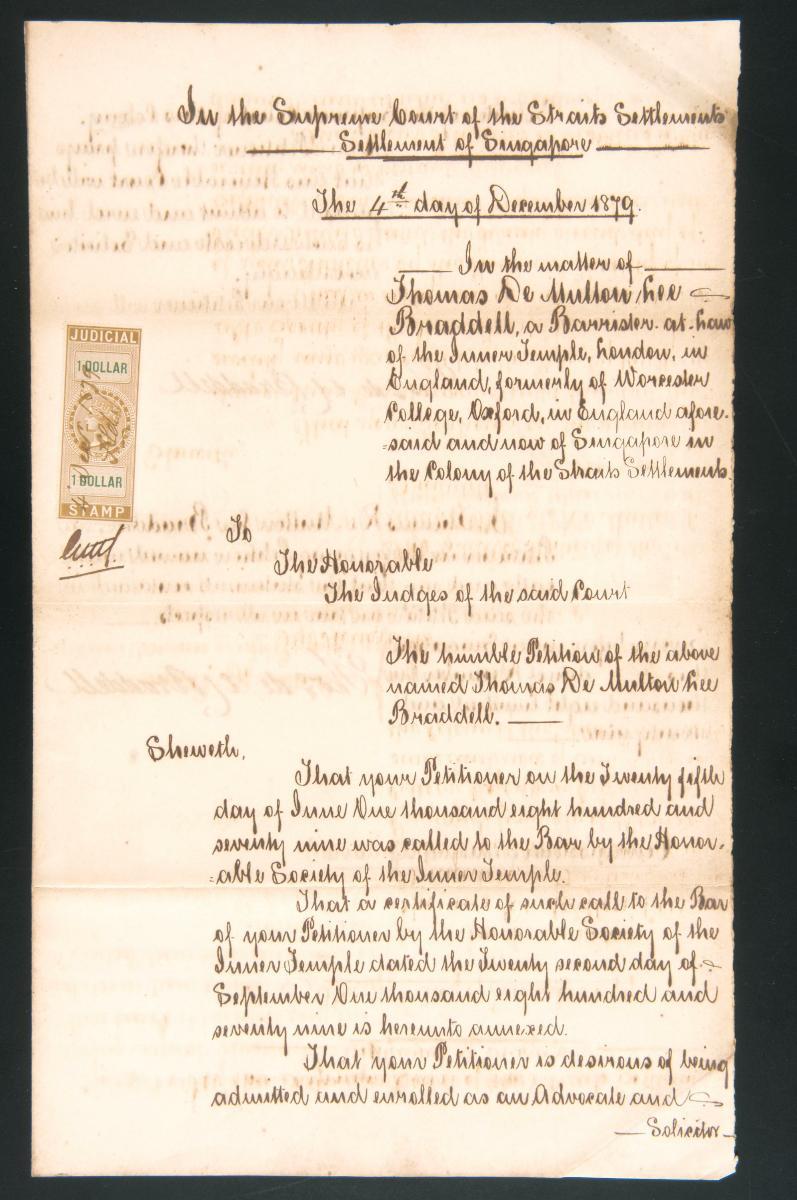 In the Supreme Court of the Straits Settlements
Settlement of Singapore
The 4th day of December 1879.
In the matter of
Thomas De Multon Lee
Braddell, a Barrister-at-Law
of the Inner Temple, London, in
England, formerly of Worcester
College, Oxford, in England afore-
=said and now of Singapore in
the Colony of the Straits Settlements.
JUDICIAL
1 DOLLAR
1 DOLLAR
STAMP
To
The Honorable
The Judges of the said Court
The humble Petition of the above
named Thomas De Multon Lee
Braddell.
Sheweth,
That your Petitioner on the Twenty fifth
day of June One thousand eight hundred and
seventy nine was called to the Bar by the Honor-
=able Society of the Inner Temple.
That a certificate of such call to the Bar
of your Petitioner by the Honorable Society of the
Inner Temple dated the Twenty second day of
September One thousand eight hundred and
seventy nine is hereunto annexed.
That your Petitioner is desirous of being
admitted and enrolled as an Advocate and
Solicitor